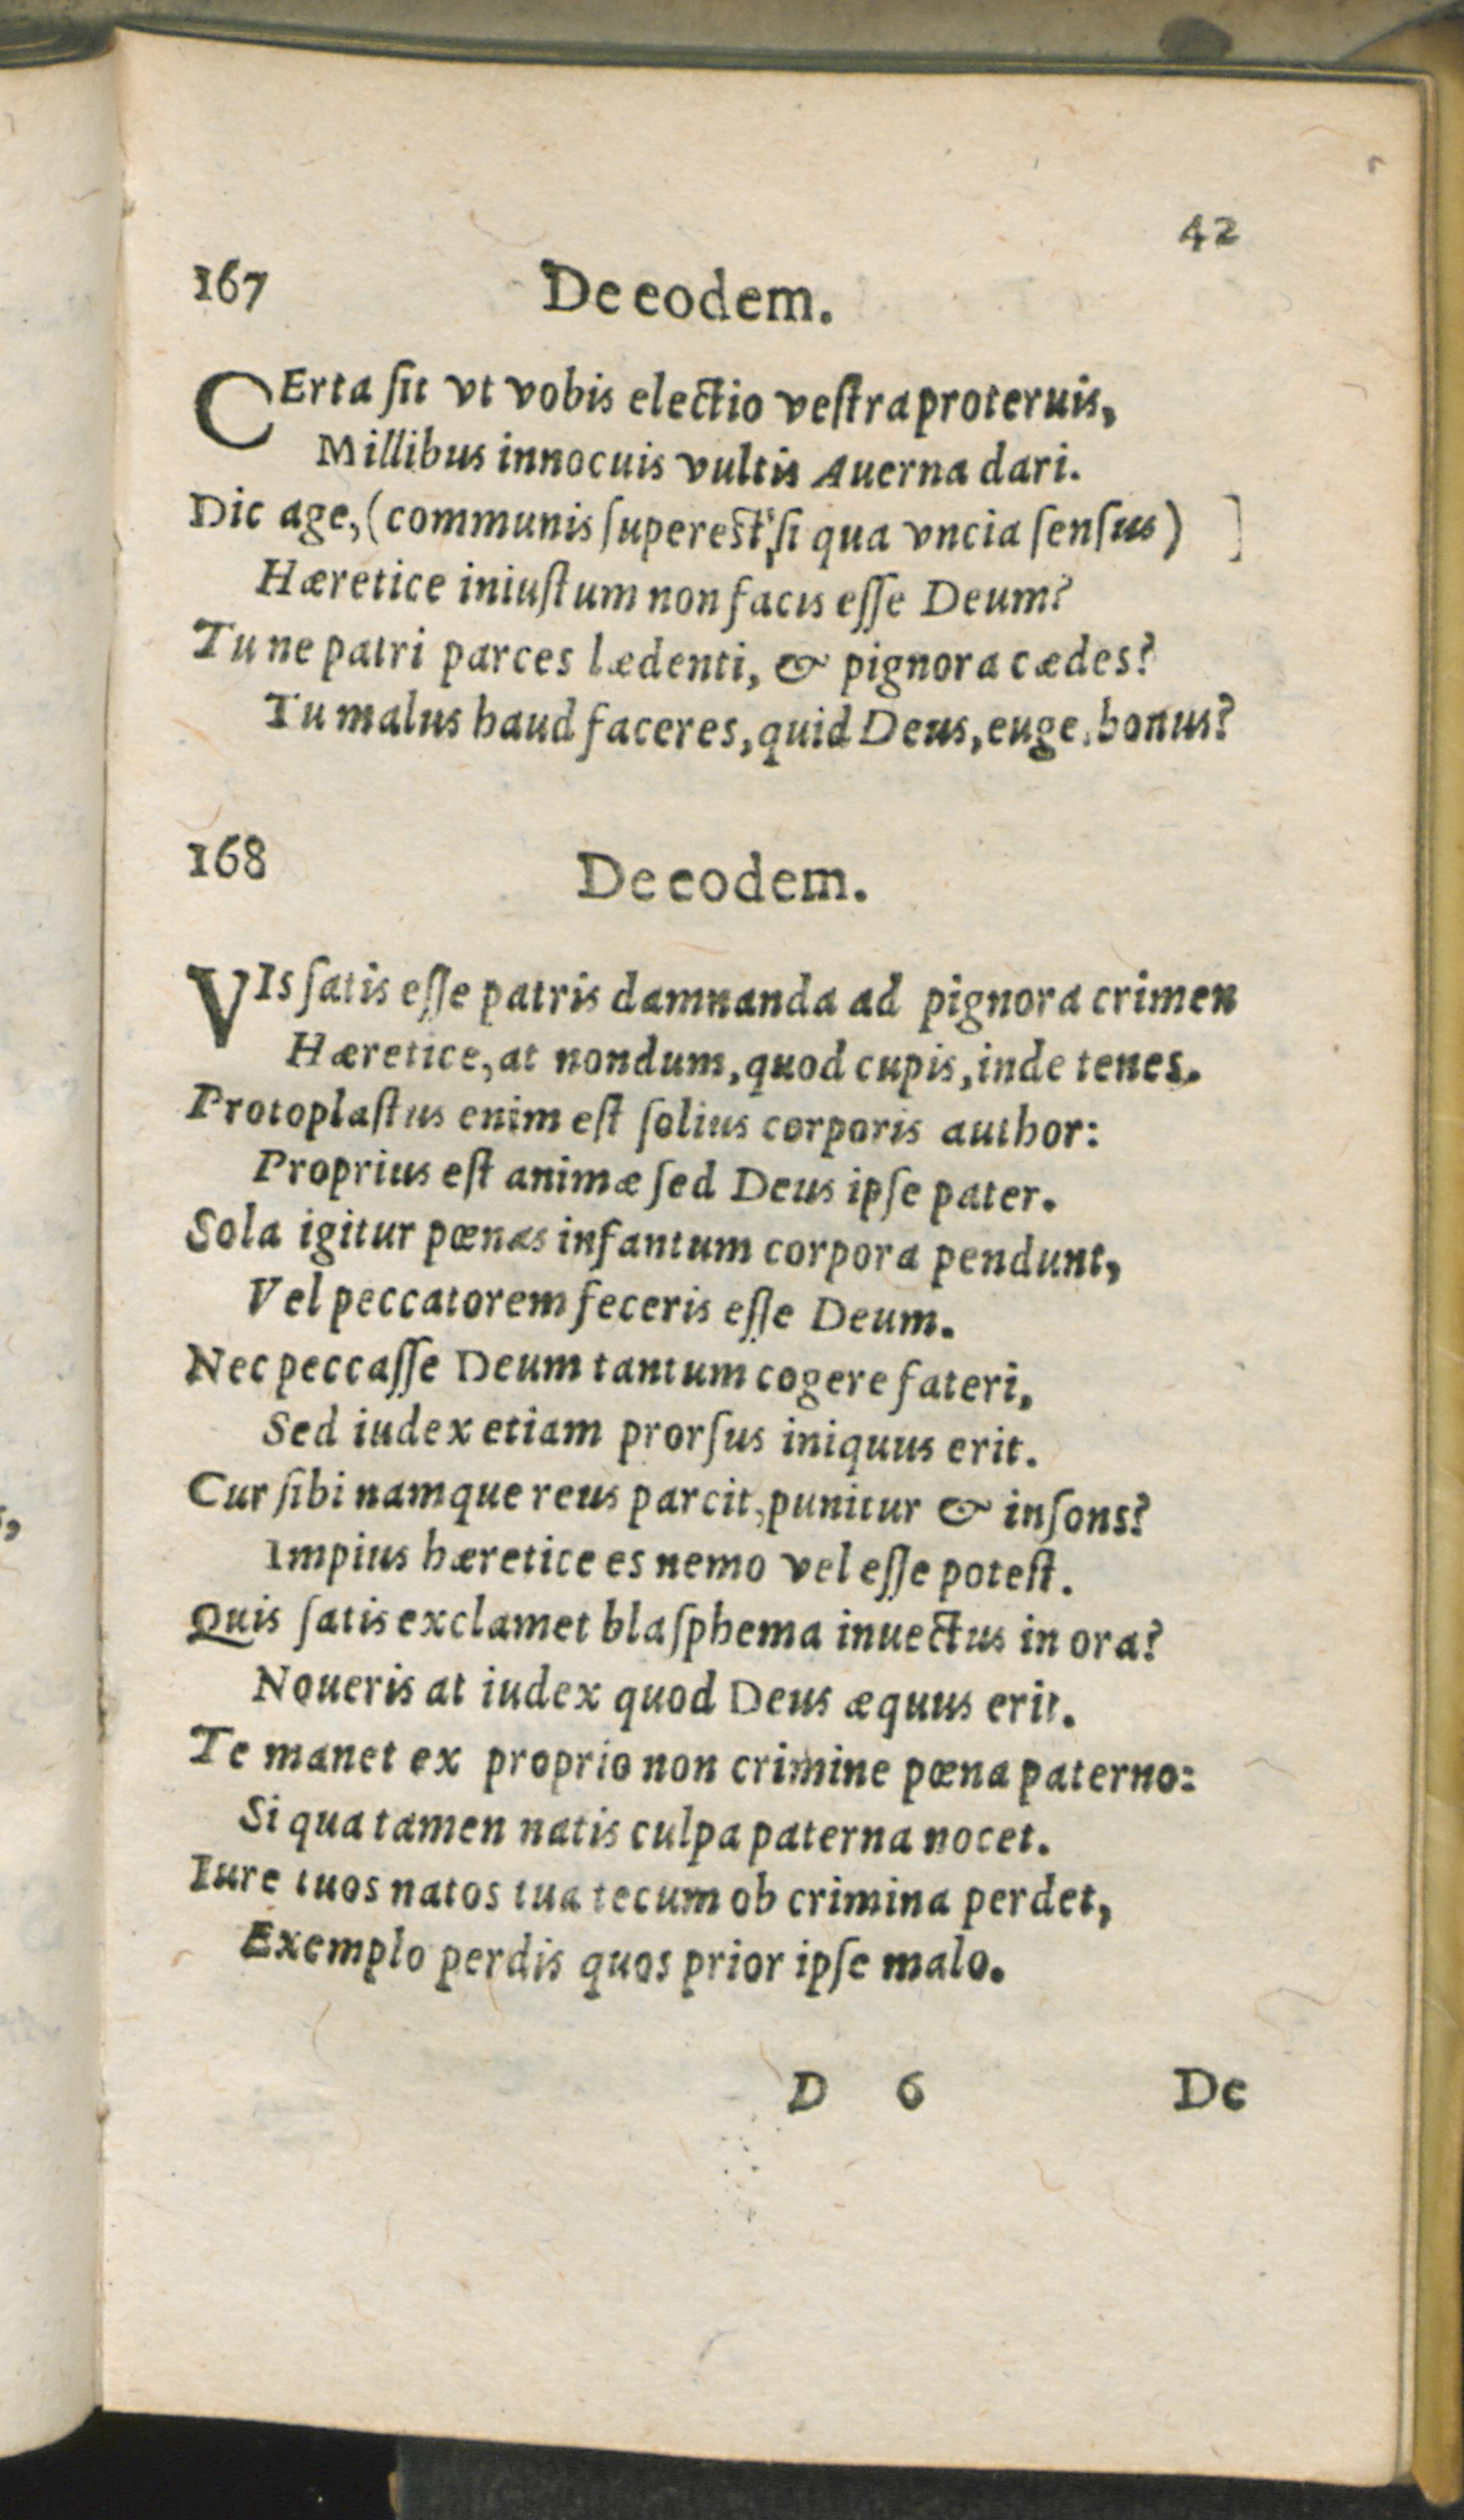 42
167 De eodem.
CErta ſit vt vobis electio veſtra proteruis,
Millibus innocuis vultis Auerna dari.
Dic age, (communis ſupereſt, ſi qua vncia ſenſus) ]
Hæretice iniuſtum non facis eſſe Deum?
Tu ne patri parces lædenti, & pignora cædes?
Tu malus haud faceres, quid Deus, euge, bonus?
168 De eodem.
VIs ſatis eſſe patris damnanda ad pignora crimen
Hæretice, at nondum, quod cupis, inde tenes.
Protoplaſtus enim eſt ſolius corporis author:
Proprius eſt animæ ſed Deus ipſe pater.
Sola igitur pœnas infantum corpora pendunt,
Vel peccatorem feceris eſſe Deum.
Nec peccaſſe Deum tantum cogere fateri,
Sed iudex etiam prorſus iniquus erit.
Cur ſibi namque reus parcit, punitur & inſons?
Impius hæretice es nemo vel eſſe poteſt.
Quis ſatis exclamet blaſphema inuectus in ora?
Noueris at iudex quod Deus æquus erit.
Te manet ex proprio non crimine pœna paterno:
Si qua tamen natis culpa paterna nocet.
Iure tuos natos tua tecum ob crimina perdet,
Exemplo perdis quos prior ipſe malo.
D 6 De